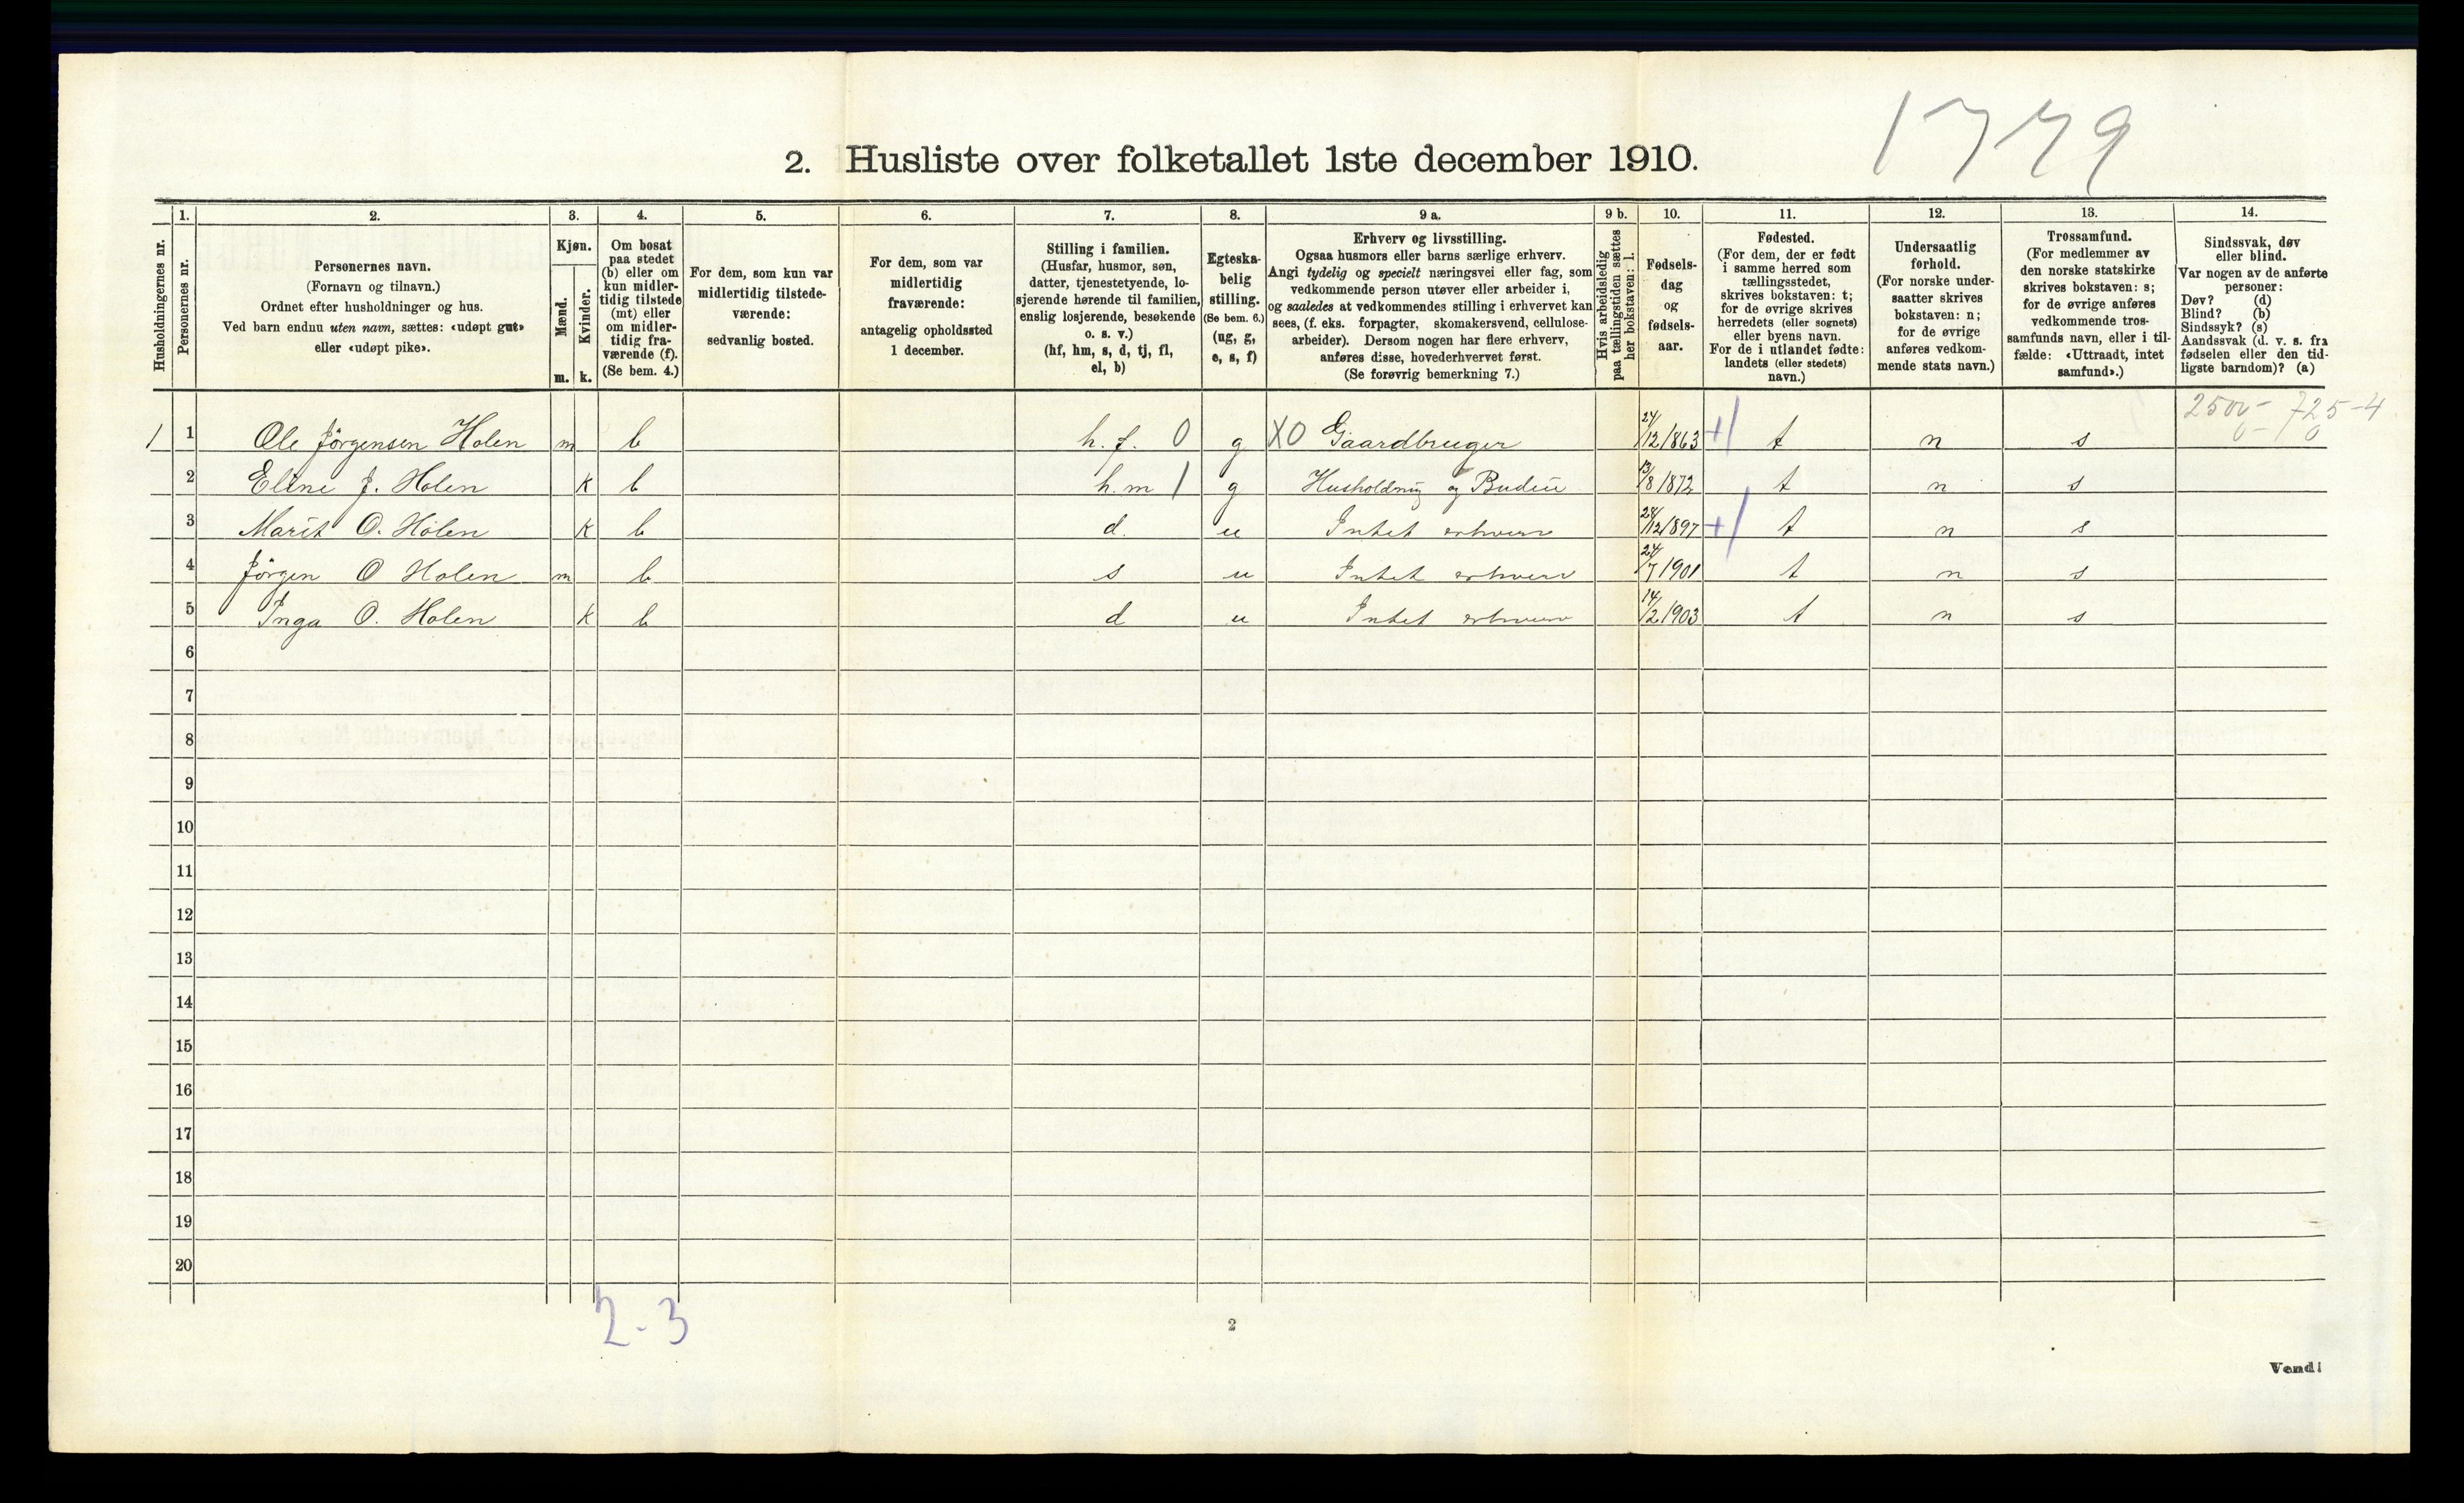 1779
2. Husliste over folketallet 1ste december 1910.
Husholdningernes nr.
1.
Personernes nr.
2.
Personernes navn.
(Fornavn og tilnavn.)
Ordnet efter husholdninger og hus.
Ved barn endnu uten navn, sættes: «udøpt gut»
eller «udøpt pike».
3.
Kjøn.
Mænd.
m.
Kvinder.
k.
4.
Om bosat
paa stedet
(b) eller om
kun midler-
tidig tilstede
(mt) eller
om midler-
tidig fra-
værende (f).
(Se bem. 4.)
5.
For dem, som kun var
midlertidig tilstede-
værende:
sedvanlig bosted.
6.
For dem, som var
midlertidig
fraværende:
antagelig opholdssted
1 december.
7.
Stilling i familien.
(Husfar, husmor, søn,
datter, tjenestetyende, lo-
sjerende hørende til familien,
enslig losjerende, besøkende
o. s. v.)
(hf, hm, s, d, tj, fl,
el, b)
8.
Egteska-
belig
stilling.
(Se bem. 6.)
(ug, g,
e, s, f)
9 a.
Erhverv og livsstilling.
Ogsaa husmors eller barns særlige erhverv.
Angi tydelig og specielt næringsvei eller fag, som
vedkommende person utøver eller arbeider i,
og saaledes at vedkommendes stilling i erhvervet kan
sees, (f. eks. forpagter, skomakersvend, cellulose-
arbeider). Dersom nogen har flere erhverv,
anføres disse, hovederhvervet først.
(Se forøvrig bemerkning 7.)
9 b.
Hvis arbeidsledig
paa tællingstiden sættes
her bokstaven: l.
10.
Fødsels-
dag
og
fødsels-
aar.
11.
Fødested.
(For dem, der er født
i samme herred som
tællingsstedet,
skrives bokstaven: t;
for de øvrige skrives
herredets (eller sognets)
eller byens navn.
For de i utlandet fødte:
landets (eller stedets)
navn.)
12.
Undersaatlig
forhold.
(For norske under-
saatter skrives
bokstaven: n;
for de øvrige
anføres vedkom-
mende stats navn.)
13.
Trossamfund.
(For medlemmer av
den norske statskirke
skrives bokstaven: s;
for de øvrige anføres
vedkommende tros-
samfunds navn, eller i til-
fælde: «Uttraadt, intet
samfund».)
14.
Sindssvak, døv
eller blind.
Var nogen av de anførte
personer:
Døv? (d)
Blind? (b)
Sindssyk? (s)
Aandssvak (d. v. s. fra
fødselen eller den tid-
ligste barndom)? (a)
2500 - 725-4
0 - 0
1 1 Ole Jörgensen Holen m b h. f. 0 g XO Gaardbruger 24/12/863 +/ t n s
2 Eline J. Holen k b h.m 1 g Husholdning og Budeie 13/8 1872 t n s
3 Marit O. Holen k b d. u Intet erhverv 28/12/897 +/ t n s
4 Jörgen O Holen m b s u Intet erhverv 24/7 1901 t n s
5 Inga O. Holen k b d u Intet erhverv 14/2 1903 t n s
6
7
8
9
10
11
12
13
14
15
16
17
18
19
20
2-3
2
Vend!